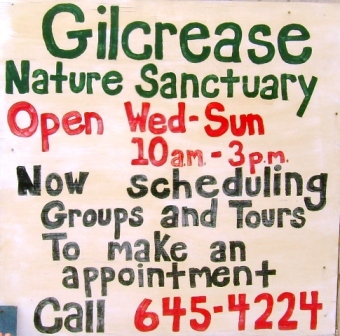 Gilcrease
Nature Sanctuary
Open Wed-Sun
10a.m. - 3 p.m.
Now scheduling
Groups and Tours
To make an
appointment
Call 645-4224